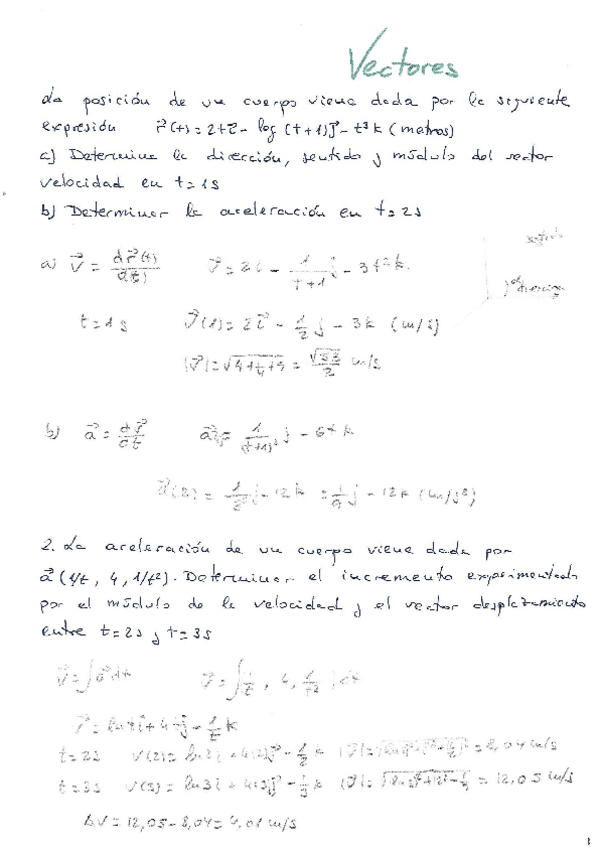 Vectores
La posición de un cuerpo viene dada por la siguiente
expresión r⃗(t) = 2t i⃗ - log (t+1) j⃗ - t³ k (metros)
a) Determine la dirección, sentido y módulo del vector
velocidad en t=1s
b) Determinar la aceleración en t=2s
a) v⃗ = dr⃗(t)/d(t) v⃗ = 2i - 1/(t+1) j - 3t² k.
t=1s v⃗(1) = 2i⃗ - 1/2 j - 3k (m/s)
|v⃗| = √(4+1/4+9) = √53/2 m/s
b) a⃗ = dv⃗/dt a⃗ = 1/(t+1)² j - 6t k
(2) = j - 12k = 1/9 j - 12k (m/s²)
2. La aceleración de un cuerpo viene dada por
a⃗ (1/t, 4, 1/t²). Determinar el incremento experimentado
por el módulo de la velocidad y el vector desplazamiento
entre t=2s y t=3s
v⃗ = ∫a⃗ dt v⃗ = ∫ 1/t, 4, 1/t² dt
v⃗ = ln t i + 4t j - 1/t k
t=2s v(2) = ln2 i + 4(2) j⃗ - 1/2 k = 8,04 m/s
t=3s v(3) = ln3 i + 4(3) j - 1/3 k = 12,05 m/s
ΔV = 12,05 - 8,04 = 4,01 m/s